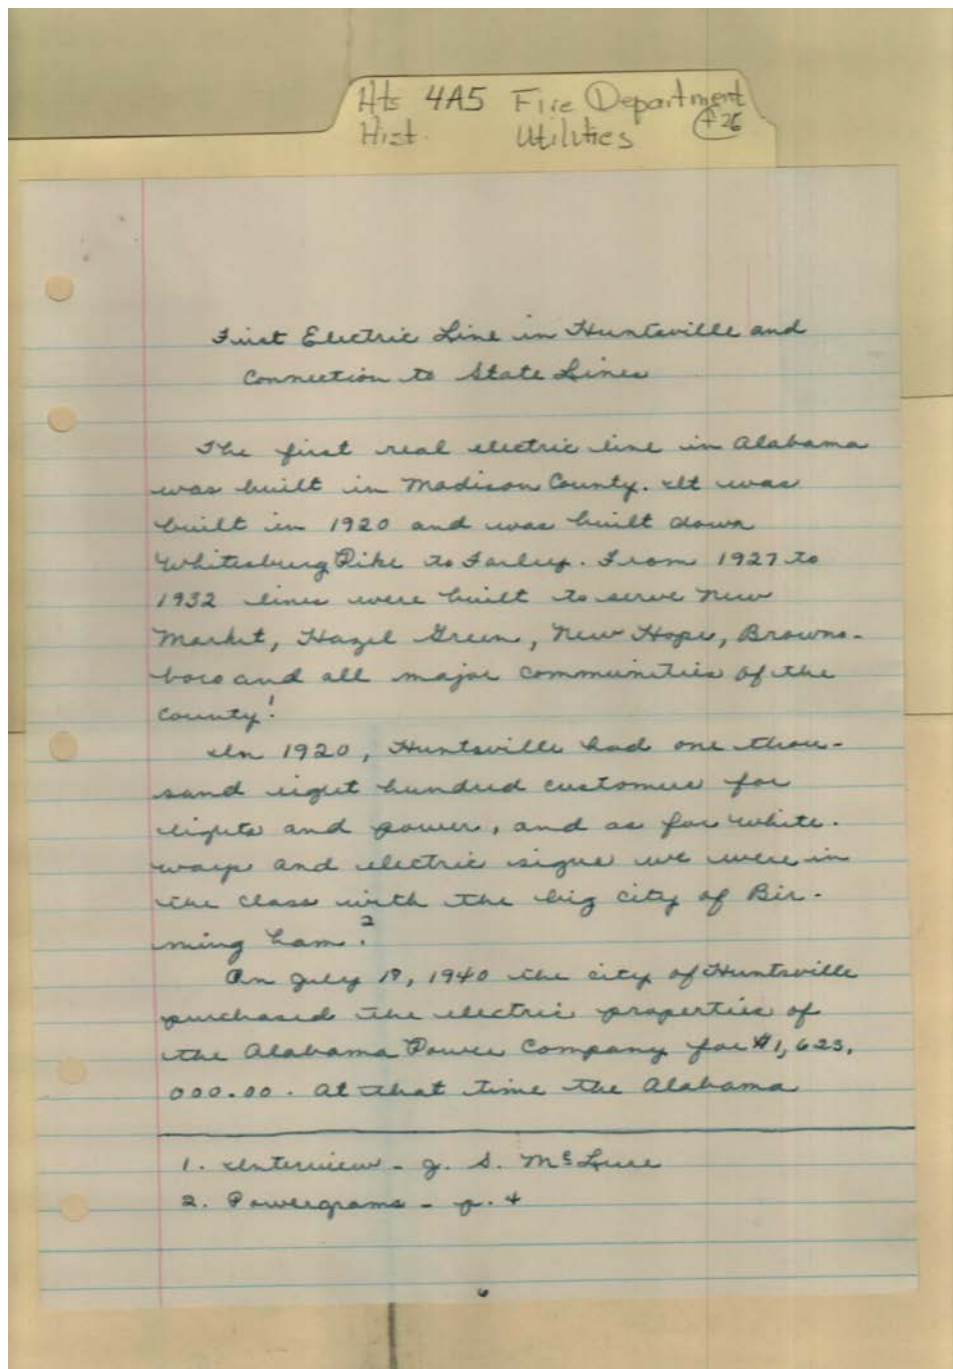 Hts 4A5 Fire Department
Hist. Utilities f 26
First Electric Line in Huntsville and
Connection to State Lines
The first real electric line in Alabama
was built in Madison County. It was
built in 1920 and was built down
Whitesburg Pike to Farley. From 1927 to
1932 lines were built to serve New
Market, Hazel Green, New Hope, Browns-
boro and all major communities of the
county.1
In 1920, Huntsville had one thou-
sand eight hundred customers for
lights and power, and as for white-
ways and electric signs we were in
the class with the big city of Bir-
ming ham.2
On July 19, 1940 the city of Huntsville
purchased the electric properties of
the Alabama Power Company for $1,623,
000.00. At that time the Alabama
1. Interview - J. S. McLure
2. Powergrams - p. 4
6